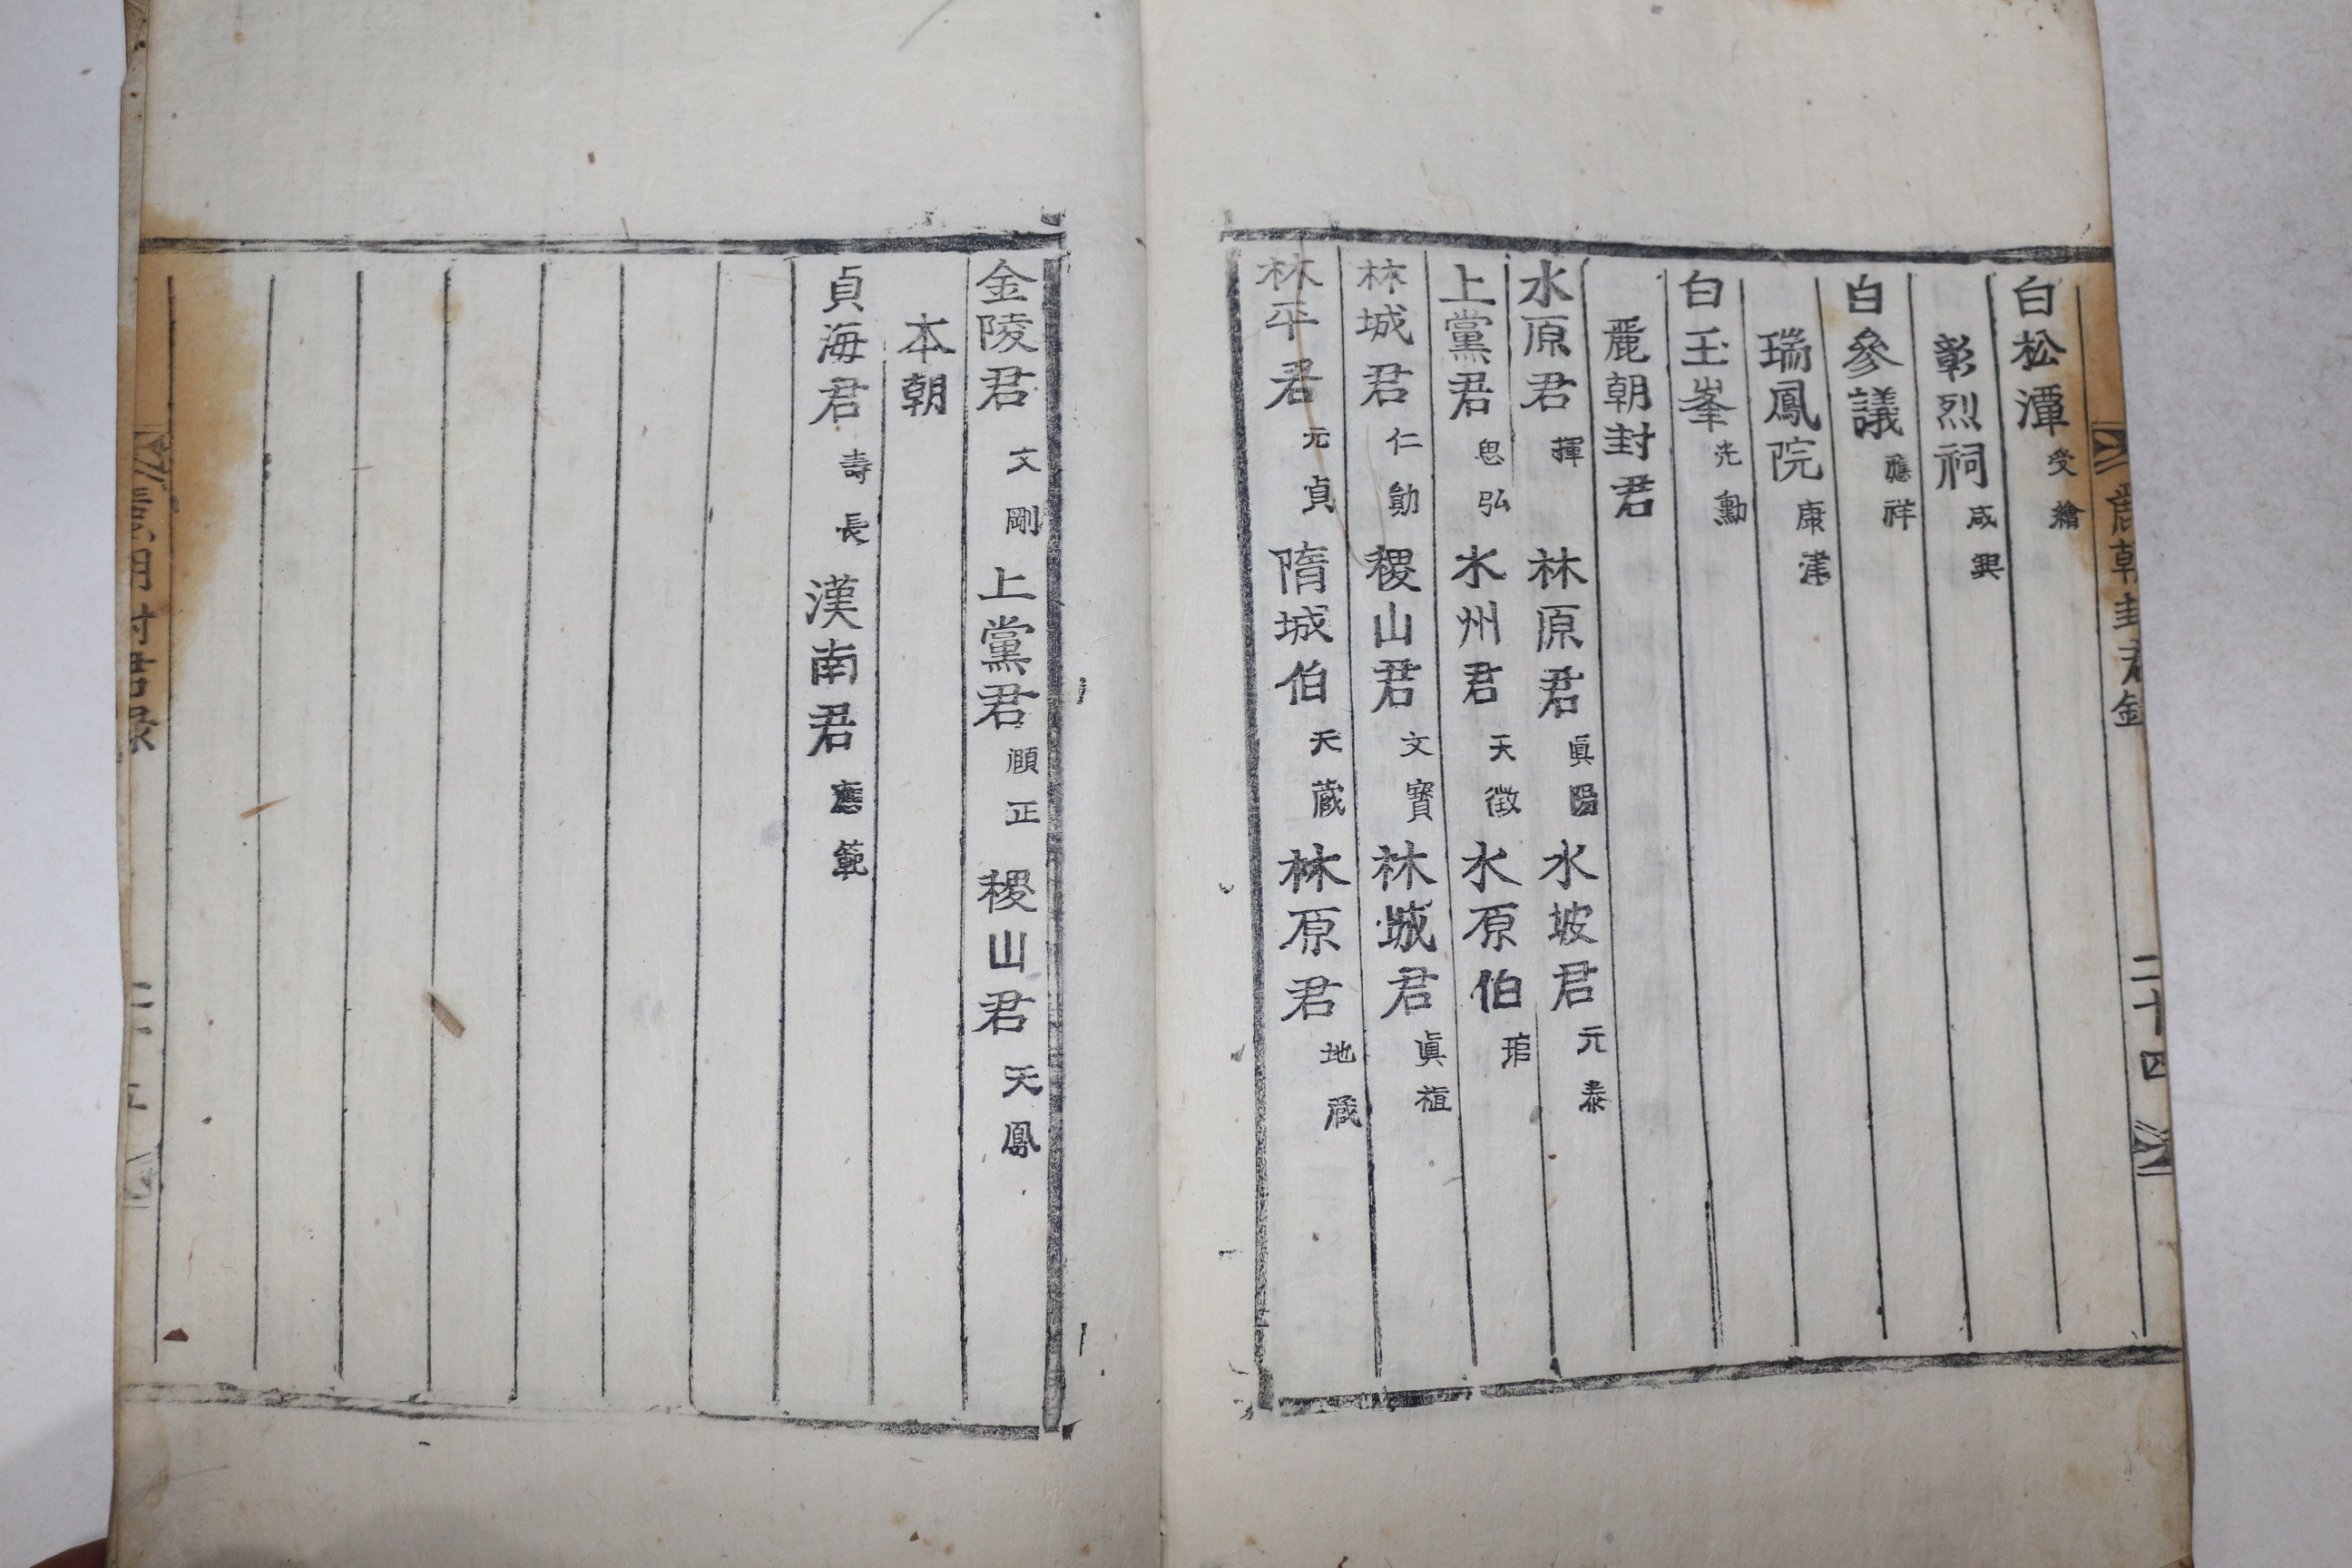 麗朝封君錄 二十四
白松潭 受繪
彰烈祠 咸興
白參議 應祥
瑞鳳院 康津
白玉峯 光勳
麗朝封君
水原君 揮 林原君 眞 水坡君 元泰
上黨君 思弘 水州君 天徵 水原伯 琯
林城君 仁勛 稷山君 文寶 林城君 眞植
林平君 元貞 隋城伯 天蔵 林原君 地蔵
金陵君 文剛 上黨君 願正 稷山君 天鳳
本朝
貞海君 壽長 漢南君 應範
朝封君录 二十五